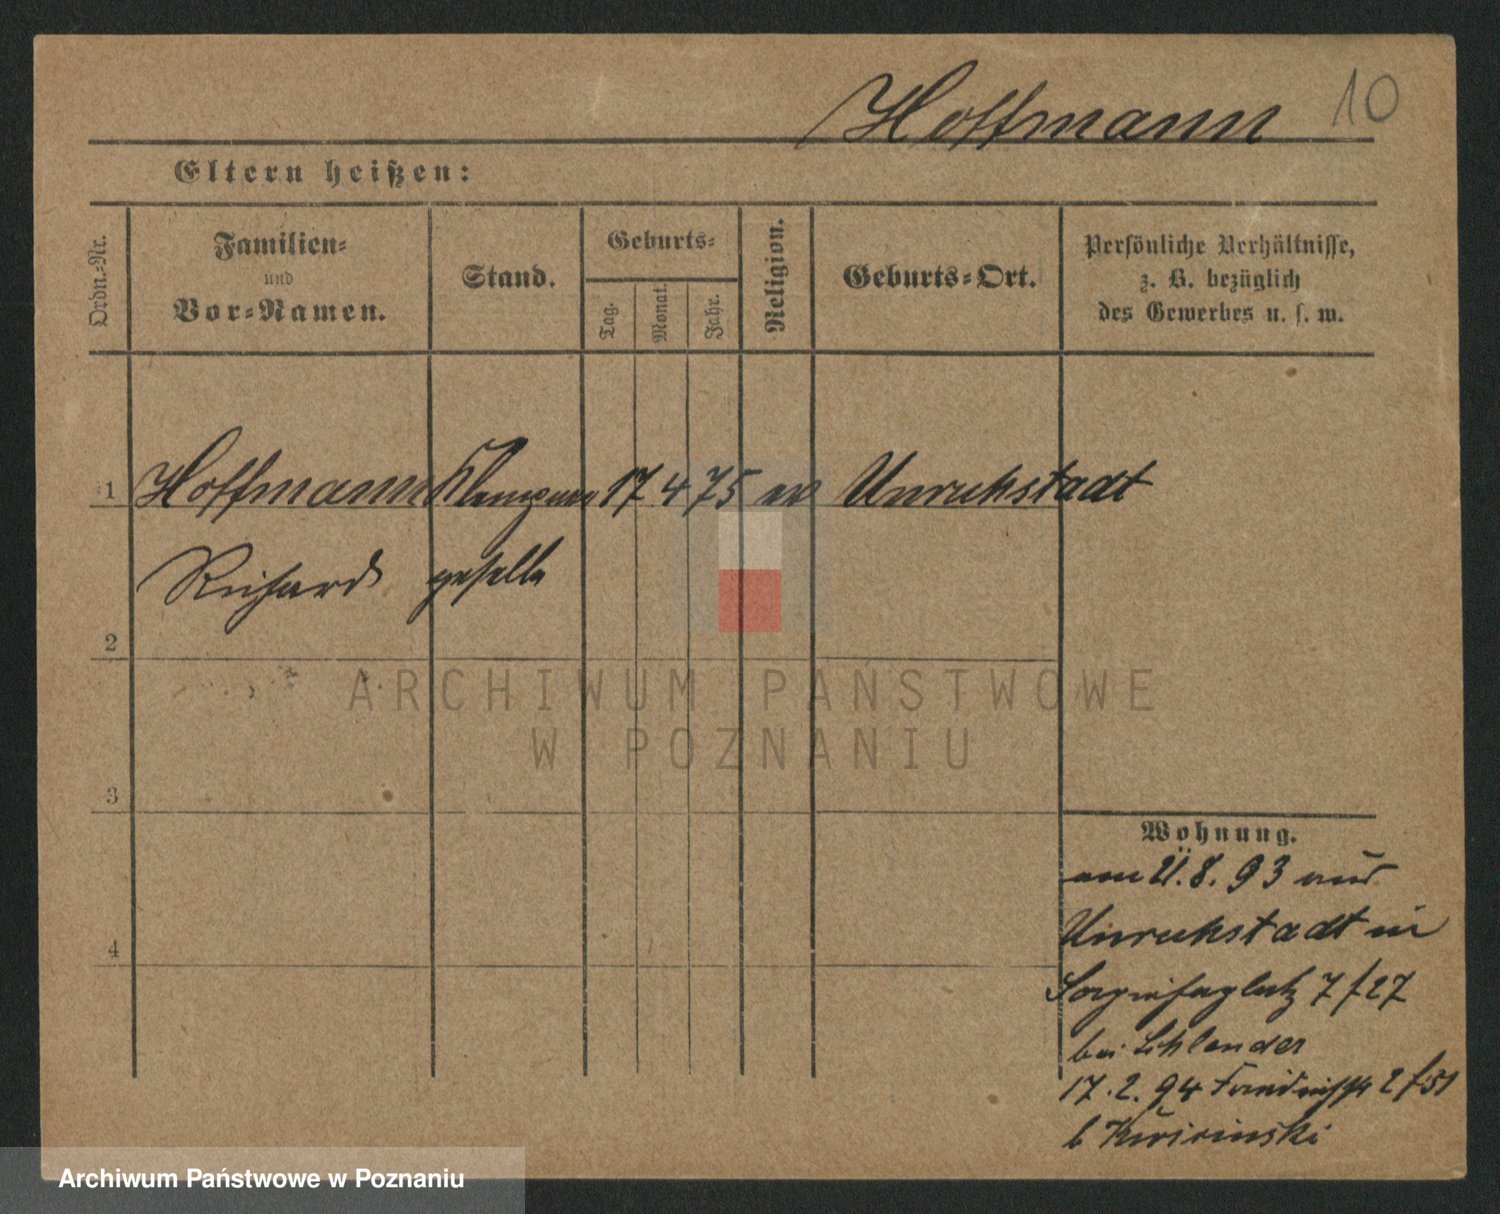 Hoffmann 10
Eltern heißen:
Ordn.-Nr.
Familien-
und
Vor-Namen.
Stand.
Geburts-
Tag.
Monat.
Jahr.
Religion.
Geburts-Ort.
Persönliche Verhältnisse,
z. B. bezüglich
des Gewerbes u. s. w.
1 Hoffmann Klempner 17 4 75 ev Unruhstadt
Richard geselle
2
ARCHIWUM PAŃSTWOWE
W POZNANIU
3
Wohnung.
8. 93 aus
4
Unruhstadt in
Sapiehaplatz 7 / 27
bei
17. 2. 94 2 / 51
b
Archiwum Państwowe w Poznaniu